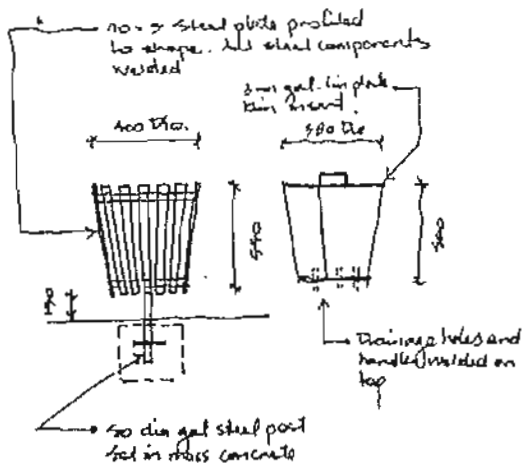 Steel plate profiled
to shape. All steel components
welded
3mm gal. tin plate
bin insert.
400 Dia.
380 Dia
550
500
Drainage holes and
handles welded on
top
50 dia gal steel post
set in mass concrete